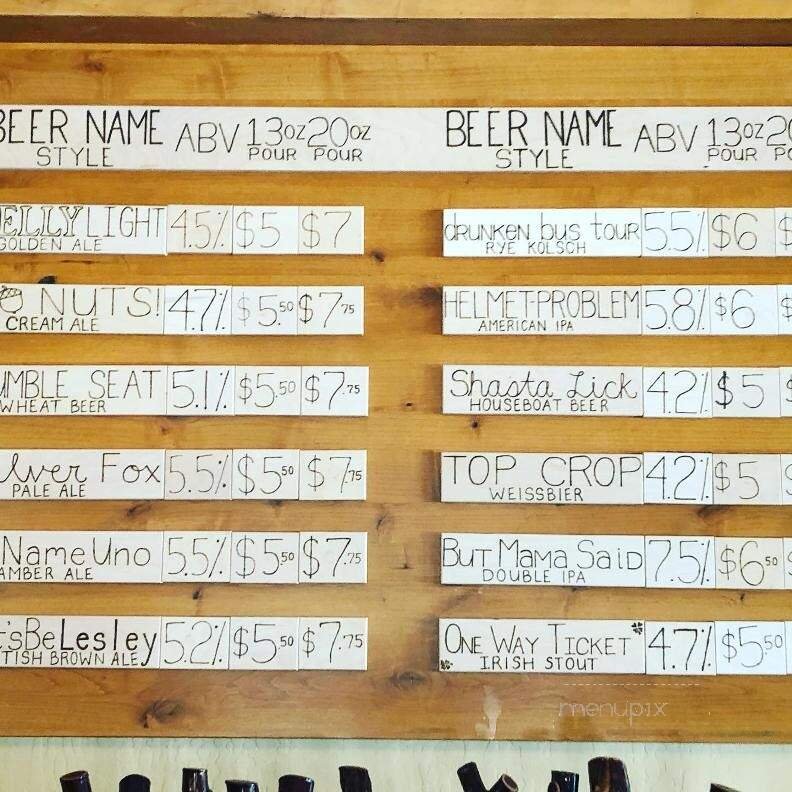 BEER NAME ABV 13oz 20oz
STYLE POUR POUR
ELLY LIGHT 4.5% $5 $7
GOLDEN ALE
NUTS! 4.7% $5.50 $7.75
CREAM ALE
UMBLE SEAT 5.1% $5.50 $7.75
WHEAT BEER
lver Fox 5.5% $5.50 $7.75
PALE ALE
Name Uno 5.5% $5.50 $7.75
AMBER ALE
t'sBeLesley 5.2% $5.50 $7.75
TISH BROWN ALE
BEER NAME ABV 13oz 20
STYLE POUR PO
drunken bus tour 5.5% $6 $
RYE KOLSCH
HELMET PROBLEM 5.8% $6 $
AMERICAN IPA
Shasta Lick 4.2% $5 $
HOUSEBOAT BEER
TOP CROP 4.2% $5 $
WEISSBIER
But Mama Said 7.5% $6.50 $
DOUBLE IPA
ONE WAY TICKET 4.7% $5.50
IRISH STOUT
menupix